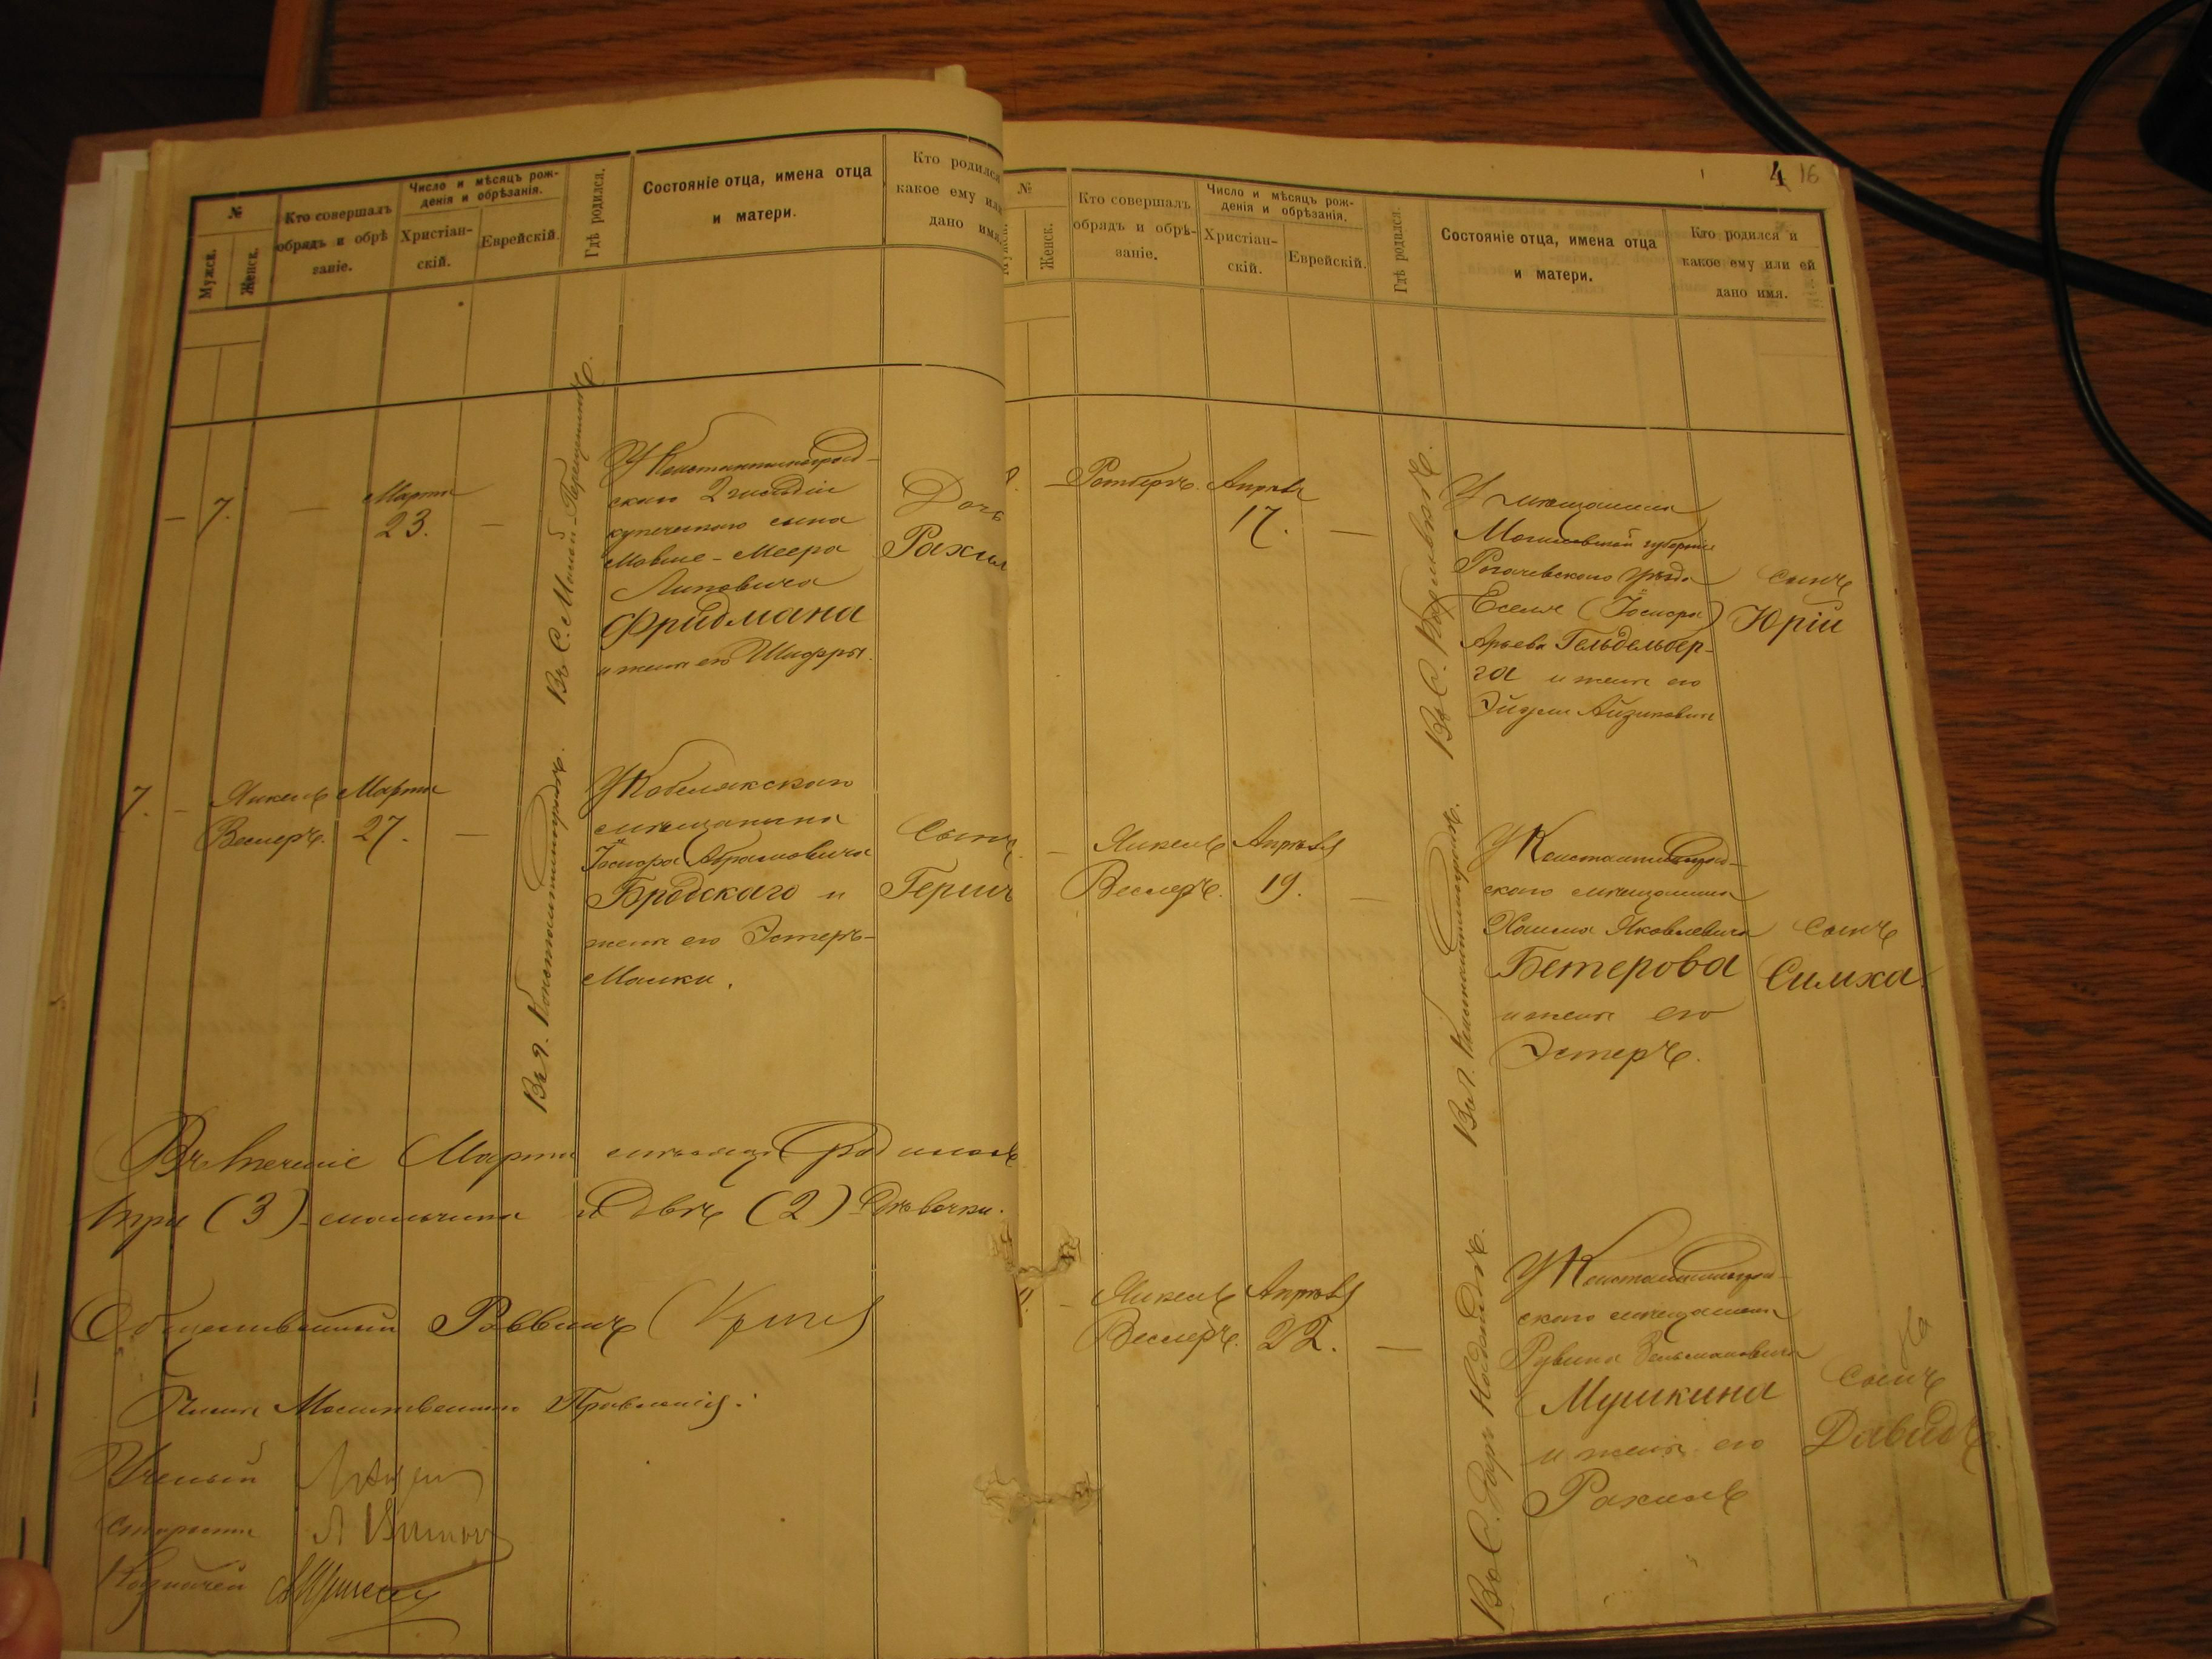 №
Мужск.
Женск.
Кто совершалъ
обрядъ и обрѣ
заніе.
Число и мѣсяцъ рож-
денія и обрѣзанія.
Христіан-
скій.
Еврейскій.
Гдѣ родился.
Состояніе отца, имена отца
и матери.
Кто родился
какое ему или
дано имя.
— 7. —
Марта
23. —
У Константиноград-
скаго 2 гильдіи
купеческаго сына
Мовше-Меера
Липовича
Фридмана
и жены его Шифры.
Дочь
Рахил
7. —
Янкель
Веслеръ.
Марта
27. —
Въ г. Константиноградѣ.
У Кобелякскаго
мѣщанина
Іосифа Абрамовича
Бродскаго и
жены его Эстеръ-
Малки.
Сынъ
Герш
Въ теченіе Марта мѣсяца родилось
три (3) мальчика и двѣ (2) дѣвочки.
Общественный Раввинъ
Члены Молитвеннаго Правленія:
Ученый
Староста
Казначей
4 16
№
Женск.
Кто совершалъ
обрядъ и обрѣ-
заніе.
Число и мѣсяцъ рож-
денія и обрѣзанія.
Христіан-
скій.
Еврейскій.
Гдѣ родился.
Состояніе отца, имена отца
и матери.
Кто родился и
какое ему или ей
дано имя.
Апрѣля
17. —
У мѣщанина
Могилевской губерніи
Рогачевскаго уѣзда
Еселя (Іосифа)
Арьева Гельдельбер-
га и жены его
Айзиковны
сынъ
Юрій
— Янкель
Веслеръ.
Апрѣля
19. —
Въ г. Константиноградѣ.
У Константиноград-
скаго мѣщанина
Хаима Яковлевича
Бетерова
и жены его
Эстеръ.
Сынъ
Симха.
11. — Янкель
Веслеръ.
Апрѣля
22. —
У Константиноград-
скаго мѣщанина
Рувина Зельмановича
Мушкина
и жены его
Рахиль
Сынъ
Давидъ.